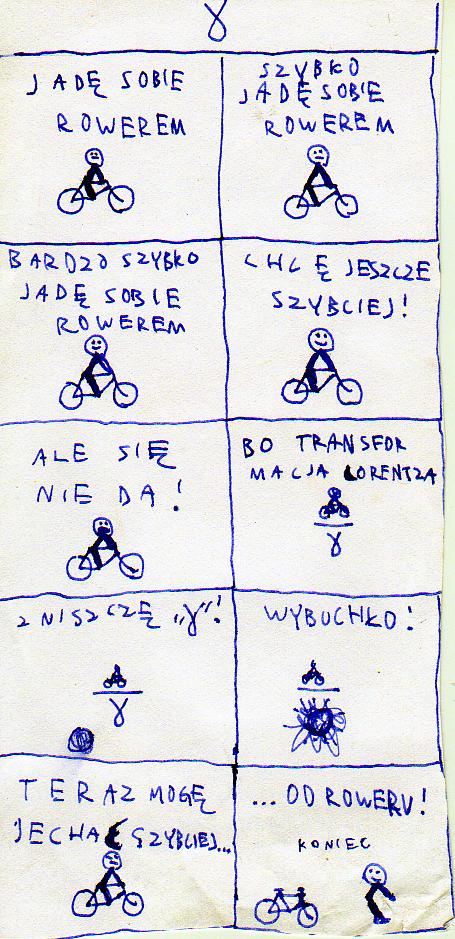 γ
JADĘ SOBIE
ROWEREM
SZYBKO
JADĘ SOBIE
ROWEREM
BARDZO SZYBKO
JADĘ SOBIE
ROWEREM
CHCĘ JESZCZE
SZYBCIEJ!
ALE SIĘ
NIE DA!
BO TRANSFOR
MACJA LORENTZA
γ
ZNISZCZĘ „γ”!
γ
WYBUCHŁO!
TERAZ MOGĘ
JECHAĆ SZYBCIEJ...
...OD ROWERU!
KONIEC